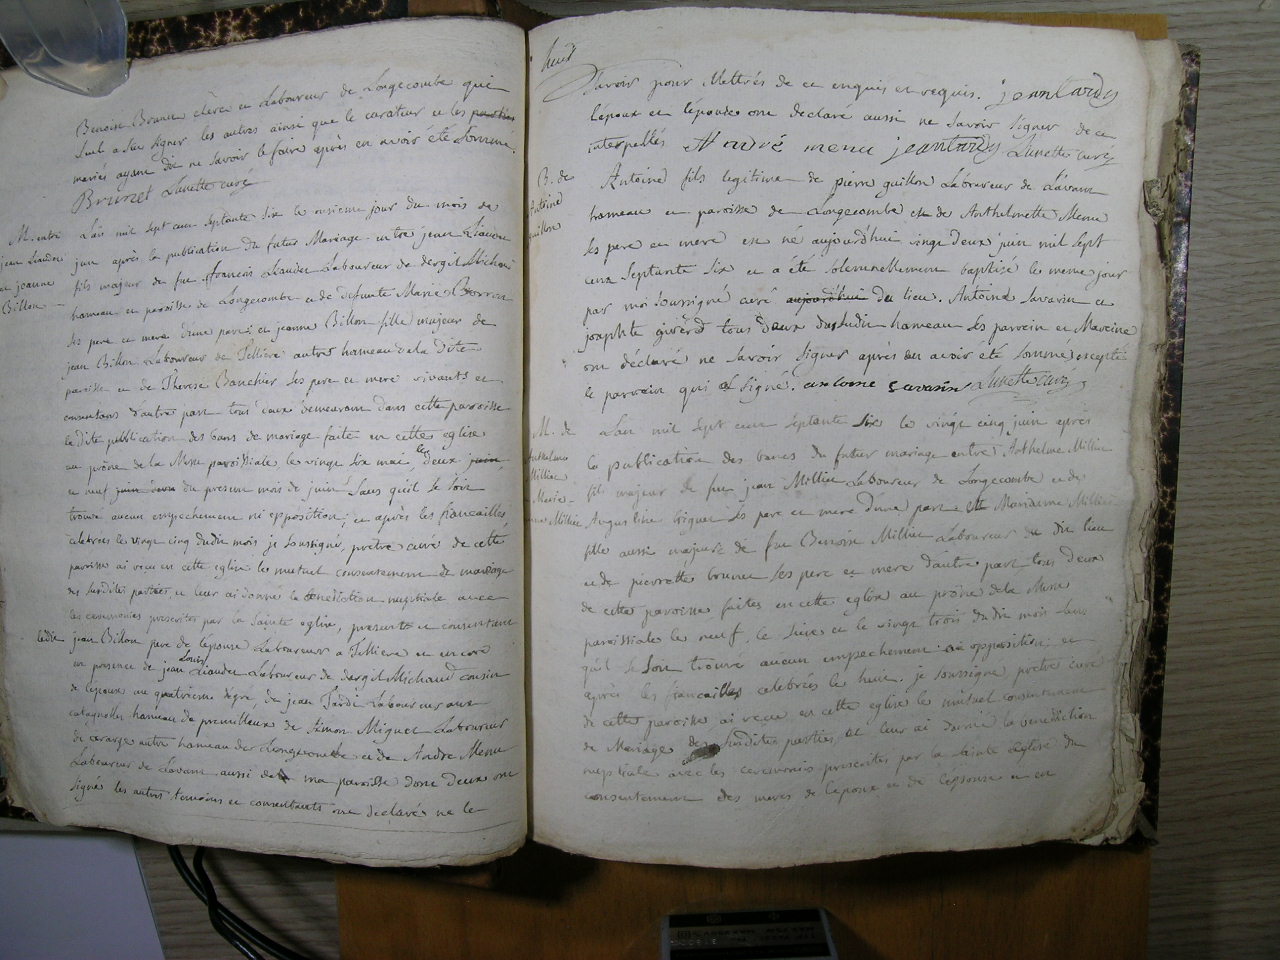 Benoit Brunet clerc et Laboureur de Longecombe qui
seul a sceu signer les autres ainsi que le curateur et les
mariés ayant dit ne savoir le faire après en avoir été sommé.
Brunet Lunette curé
M. entre
jean Liaudet
et jeanne
Billon
L'an mil sept cent septante six le onzieme jour du mois de
juin après la publication du futur Mariage entre jean Liaudet
fils majeur de feu francois Liaudet Laboureur de dergit Michaud
hameau et paroisse de Longecombe et de defunte Marie
ses pere et mere d'une part: et jeanne Billon fille majeur de
jean Billon Laboureur de Telliere autre hameau de la dite
paroisse et de Therese Bouchier ses pere et mere vivants et
consentans d'autre part tous ceux demeurant dans cette paroisse
la dite publication des bans de mariage faite en cette eglise
au prône de la Messe paroissiale le vingt six mai, le deux juin
et neuf juin du present mois de juin sans qu'il se soit
trouvé aucun empechement ni opposition; et après les fiancailles
celebrées le vingt cinq dudit mois je soussigné, pretre curé de cette
paroisse ai recu en cette eglise le mutuel consentement de mariage
des susdites parties et leur ai donné la benediction nuptiale avec
les ceremonies prescrites par la sainte eglise, presents et consentant
ledit jean Billon pere de l'epouse Laboureur a Telliere et encore
en presence de jean Louis Liaudet Laboureur de dergit Michaud cousin
de l'epoux au quatrieme degré, de jean Tardi Laboureur aux
catagnolles hameau de premilleux de Simon Miguet Laboureur
de cerarge autre hameau de Longecombe et de André Menu
Laboureur de Lavant aussi de ma paroisse dont deux ont
signé les autres temoins et consentants ont declarés ne le
huit
savoir pour illettrés de ce enquis et requis. jean tardy
l'epoux et l'epouse ont declaré aussi ne savoir signer de ce
interpellés André menu jean tardy Lunette curé
B. de
Antoine
guillon
Antoine fils legitime de pierre guillon Laboureur de Lavant
hameau et paroisse de Longecombe et de Anthelmette Menu
ses pere et mere est né aujourd'hui vingt deux juin mil sept
cent septante six et a été solemnellement baptisé le meme jour
par moi soussigné curé aujourd'hui du lieu. Antoine Savarin et
josephte girerd tous deux dudit hameau ses parrein et Mareine
ont déclaré ne savoir signer après en avoir été sommé excepté
le parrain qui a signé. antoine savarin Lunette curé
M. de
Anthelme
Milliet
Marie-
anne Milliet
L'an mil sept cent septante six le vingt cinq juin après
la publication des bancs du futur mariage entre Anthelme Milliet
fils majeur de feu jean Milliet Laboureur de Longecombe et de
Augustine ses pere et mere d'une part et Marianne Milliet
fille aussi majeure de feu Benoit Milliet Laboureur du dit lieu
et de pierrette brunet ses pere et mere d'autre part tous deux
de cette paroisse faites en cette eglise au prône de la Messe
paroissiale les neuf, le seize et le vingt trois dudit mois sans
qu'il se soit trouvé aucun empechement ni opposition, et
après les fiancailles celebrées le huit. je soussigné pretre curé
de cette paroisse ai recu en cette eglise le mutuel consentement
de Mariage des susdites parties et leur ai donné la benediction
nuptiale avec les ceremonies prescrites par la sainte eglise du
consentement des meres de l'epoux et de l'epouse et en